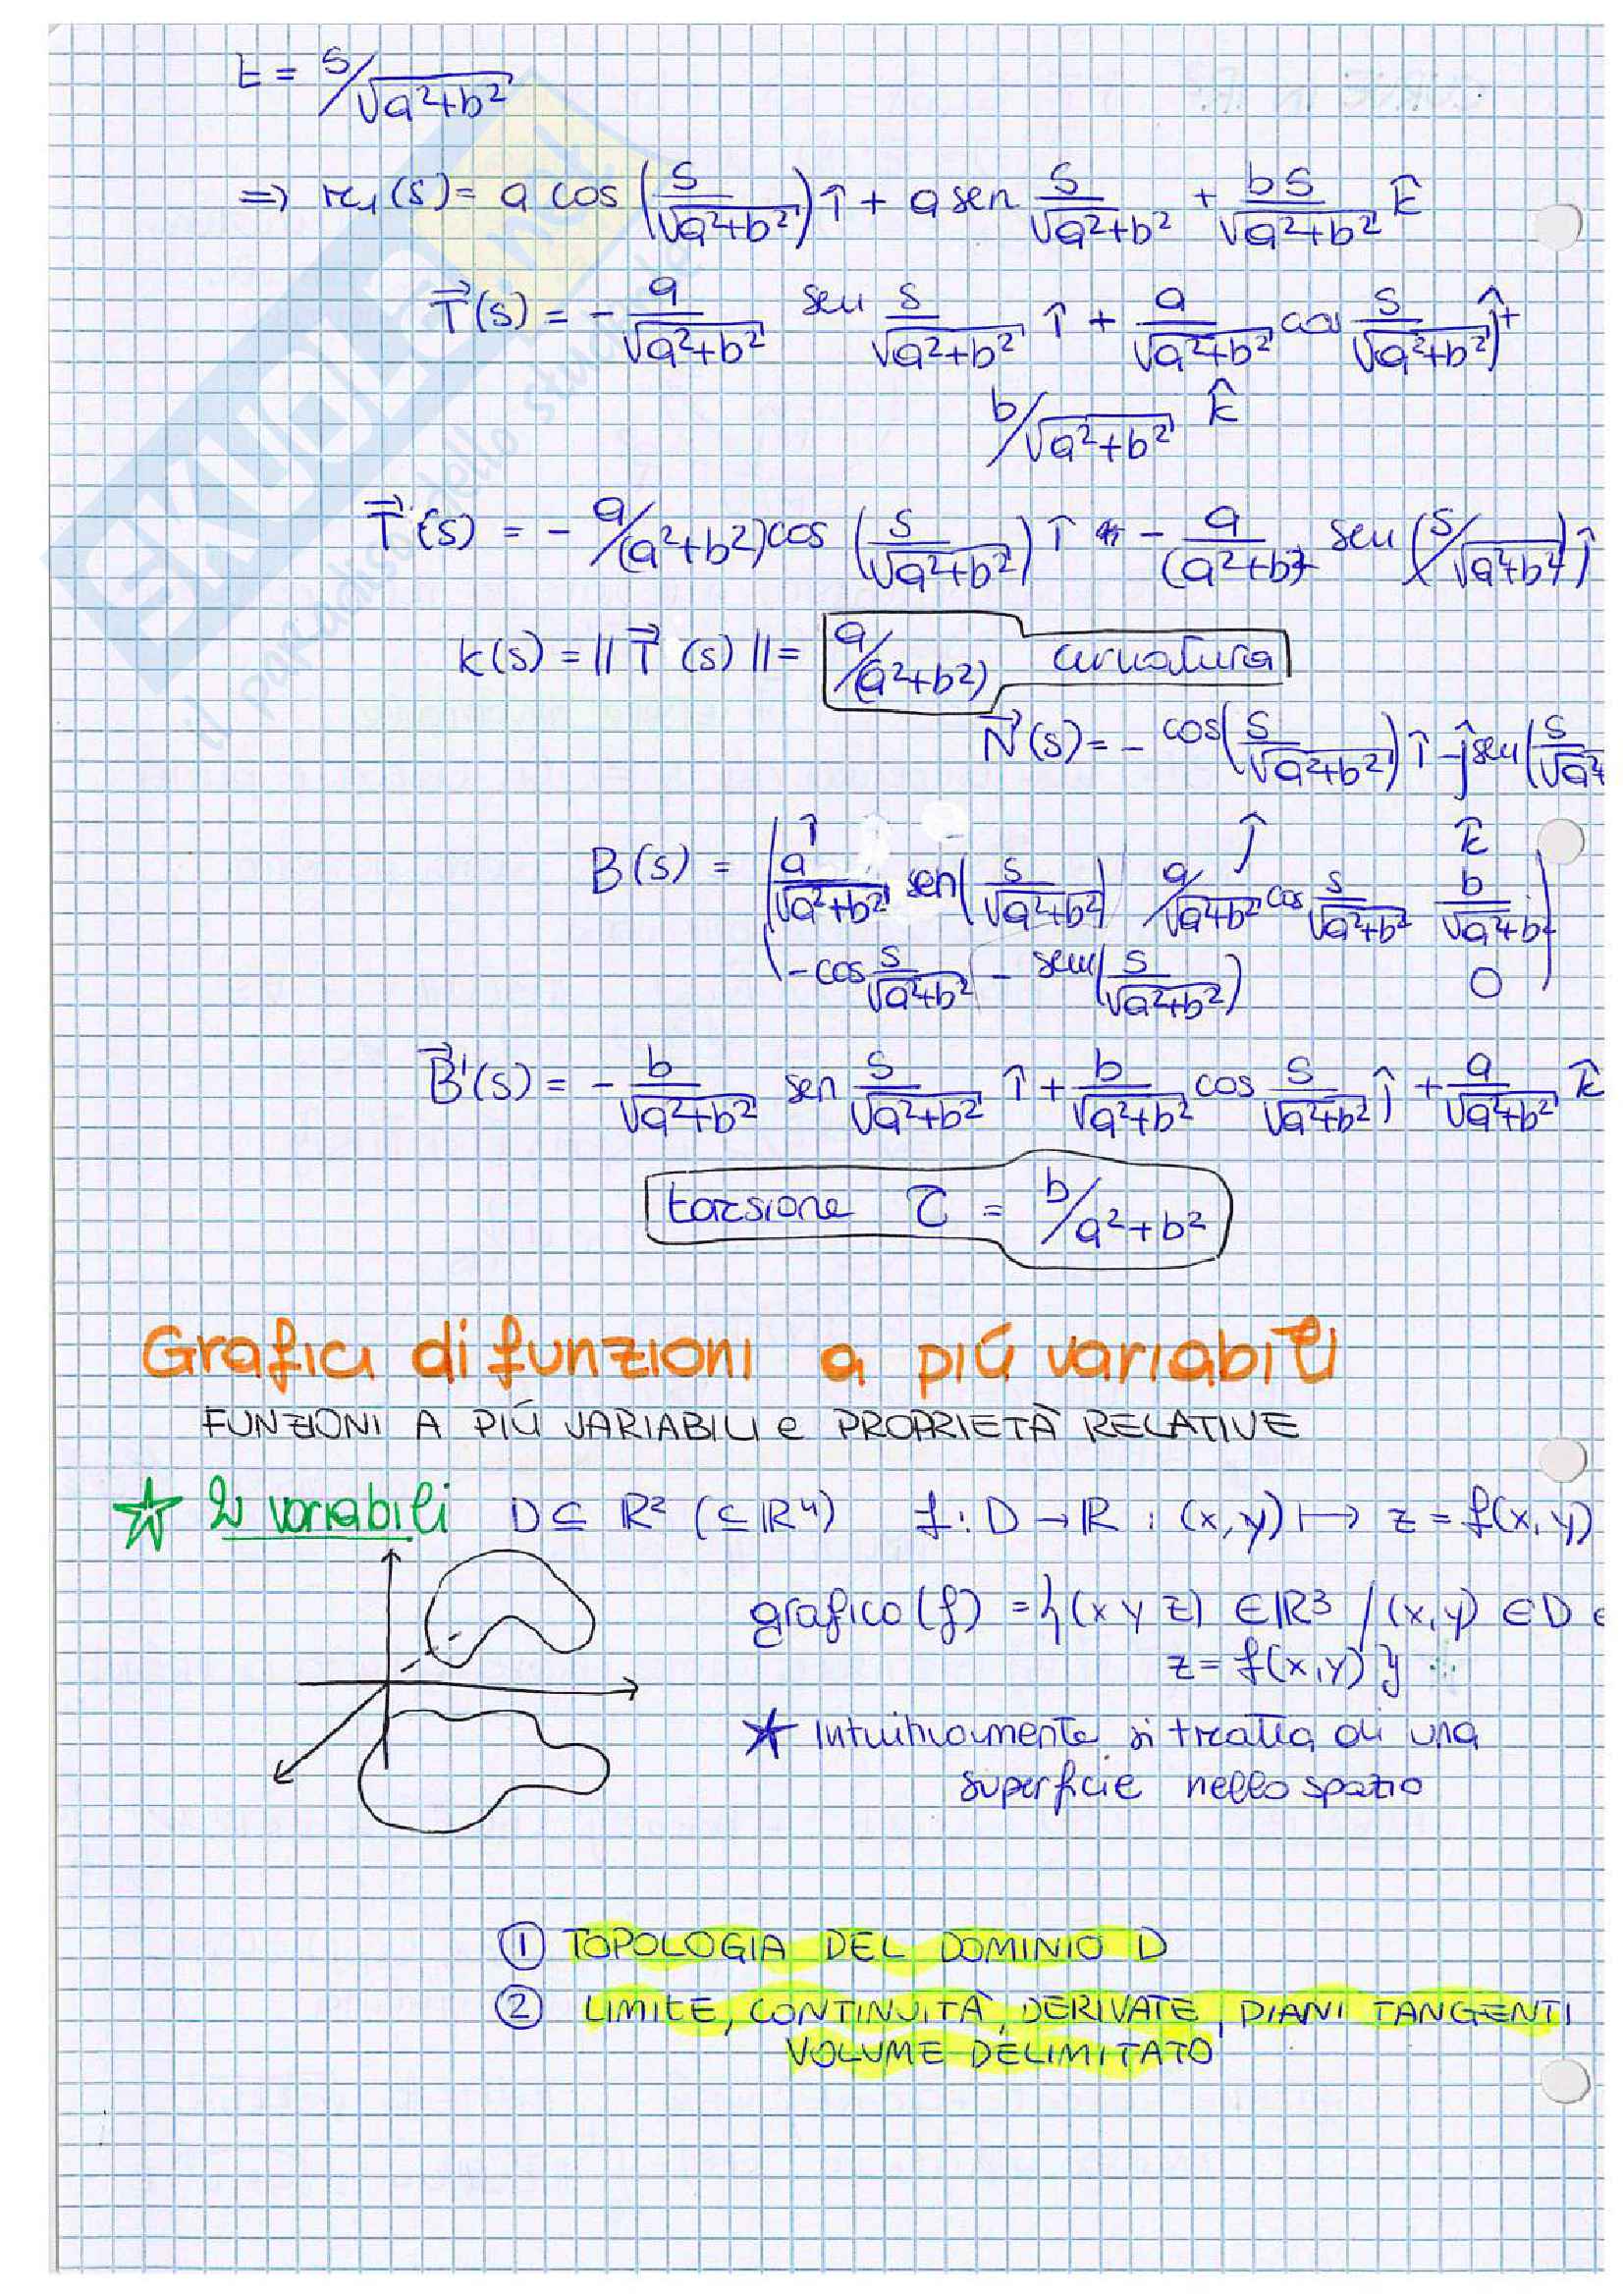 t = s/√(a²+b²)
⇒ r₁(s) = a cos (s/√(a²+b²)) î + a sen s/√(a²+b²) + bs/√(a²+b²) k̂
T⃗(s) = - a/√(a²+b²) sen s/√(a²+b²) î + a/√(a²+b²) cos s/√(a²+b²) ĵ +
b/√(a²+b²) k̂
T⃗'(s) = - a/(a²+b²) cos (s/√(a²+b²)) î - a/(a²+b²) sen (s/√(a²+b²)) ĵ
k(s) = || T⃗ (s) || = a/(a²+b²) curvatura
N⃗(s) = - cos(s/√(a²+b²)) î - ĵ sen(s/√a²+
î ĵ k̂
B(s) = a/√(a²+b²) sen(s/√(a²+b²)) a/√(a²+b²) cos s/√(a²+b²) b/√(a²+b
-cos s/√(a²+b²) - sen(s/√(a²+b²)) 0
B⃗'(s) = - b/√(a²+b²) sen s/√(a²+b²) î + b/√(a²+b²) cos s/√(a²+b²) ĵ + a/√(a²+b²) k̂
torsione τ = b/a²+b²
Grafici di funzioni a più variabili
FUNZIONI A PIÚ VARIABILI e PROPRIETÀ RELATIVE
☆ 2 variabili D ⊆ ℝ² (⊆ ℝ⁴) f : D → ℝ : (x,y) ↦ z = f(x,y)
grafico (f) = {(x y z) ∈ ℝ³ / (x,y) ∈ D e
z = f(x,y) }
★ Intuitivamente si tratta di una
superficie nello spazio
① TOPOLOGIA DEL DOMINIO D
② LIMITE, CONTINUITÀ, DERIVATE, PIANI TANGENTI
VOLUME DELIMITATO
SKUOLA.net
il paradiso dello studente